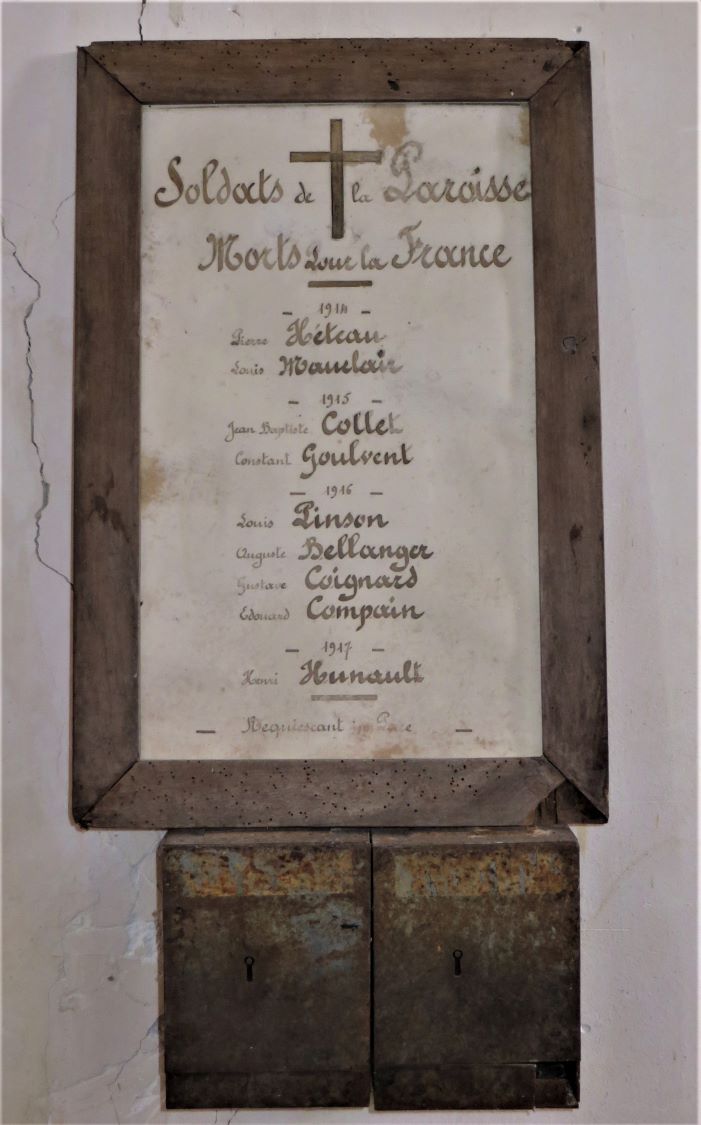 Soldats de la Paroisse
Morts Pour la France
- 1914 -
Pierre Héteau
Louis Mauclair
- 1915 -
Jean Baptiste Collet
Constant Goulvent
- 1916 -
Louis Pinson
Auguste Bellanger
Gustave Coignard
Edouard Compain
- 1917 -
Henri Hunault
- Requiescant in Pace -